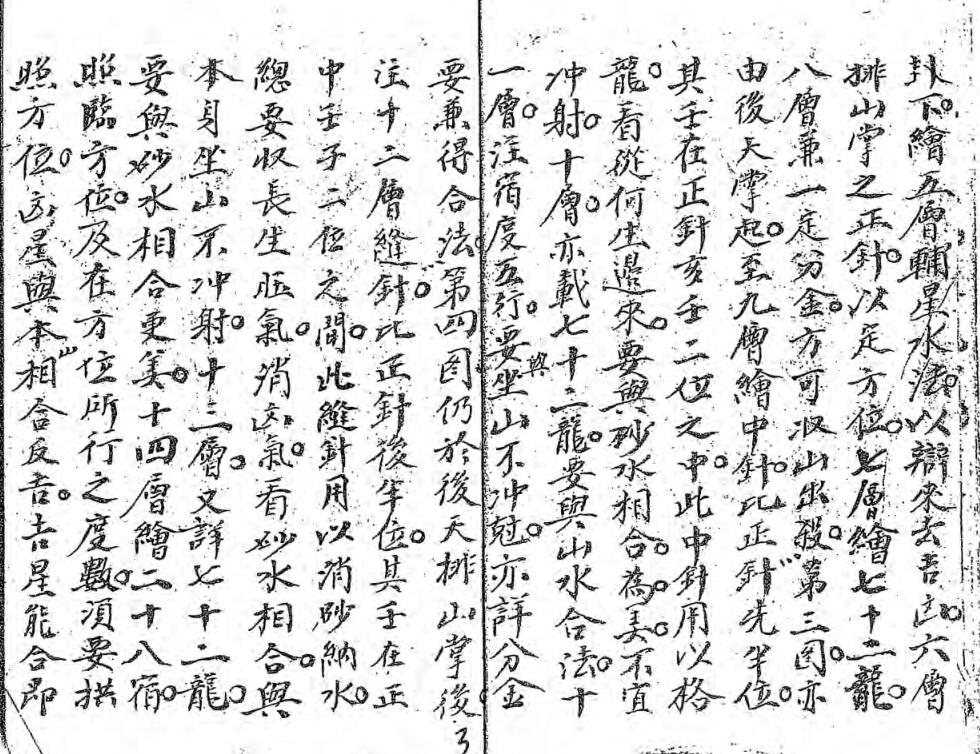 卦下。繪五層輔星水法。以辯來去吉凶。六層
排山掌之正針。以定方位。七層繪七十二龍。
八層兼一定分金。方可收山出殺。第三图亦
由後天掌起。至九層繪中針。比正針先半位。
其壬在正針亥壬二位之中。此中針用以格
龍。看從何生邉來。要與砂水相合。為美。不宜
冲射。十層。亦載七十二龍。要與山水合法。十
一層。注宿度五行。要與坐山不冲尅。亦詳分金
要兼得合法。第四图仍於後天排山掌後
注十二層縫針。比正針後半位。其壬在正
中壬子二位之間。此縫針用以消砂納水。
總要収長生旺氣。消凶氣。看砂水相合。與
本身坐山不冲射。十三層。又詳七十二龍。
要與砂水相合更美。十四層繪二十八宿。
照臨方位。及在方位所行之度數。須要拱
照方位。凶星與本山相合反吉。吉星能合即
3